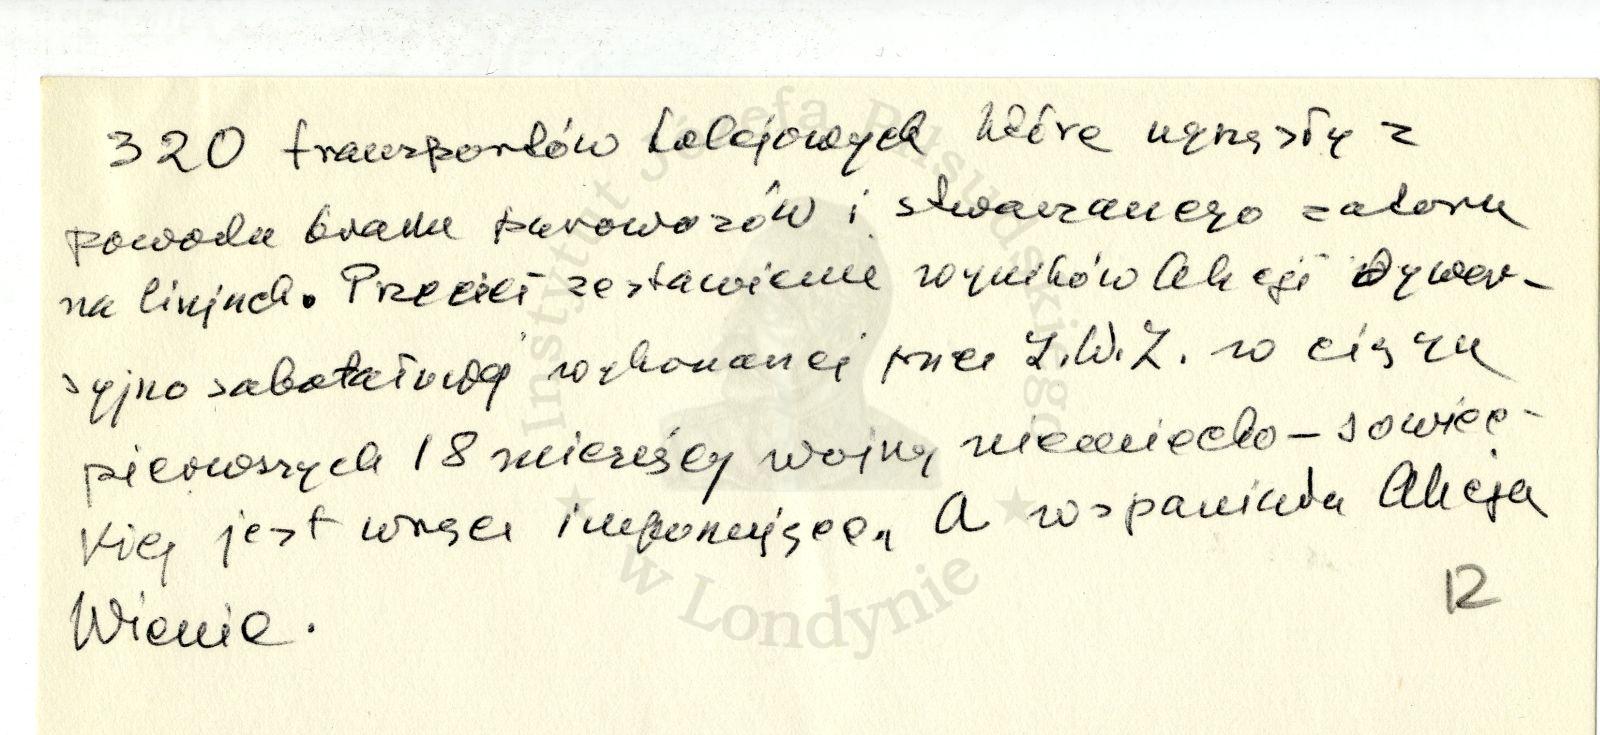 320 transportów kolejowych które ugrzęzły z
powodu braku parowozów i stwarzanego zatoru
na linjach. Przecież zestawienie wyników Akcji dywer-
syjno sabotażowej wykonanej przez Z.W.Z. w ciągu
pierwszych 18 miesięcy wojny niemiecko-sowiec-
kiej jest wręcz imponujące. A wspaniała Akcja
Wienie.
12
Instytut Józefa Piłsudskiego
w Londynie